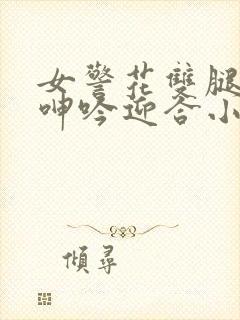 女警花雙腿
呻吟迎合小
傾尋